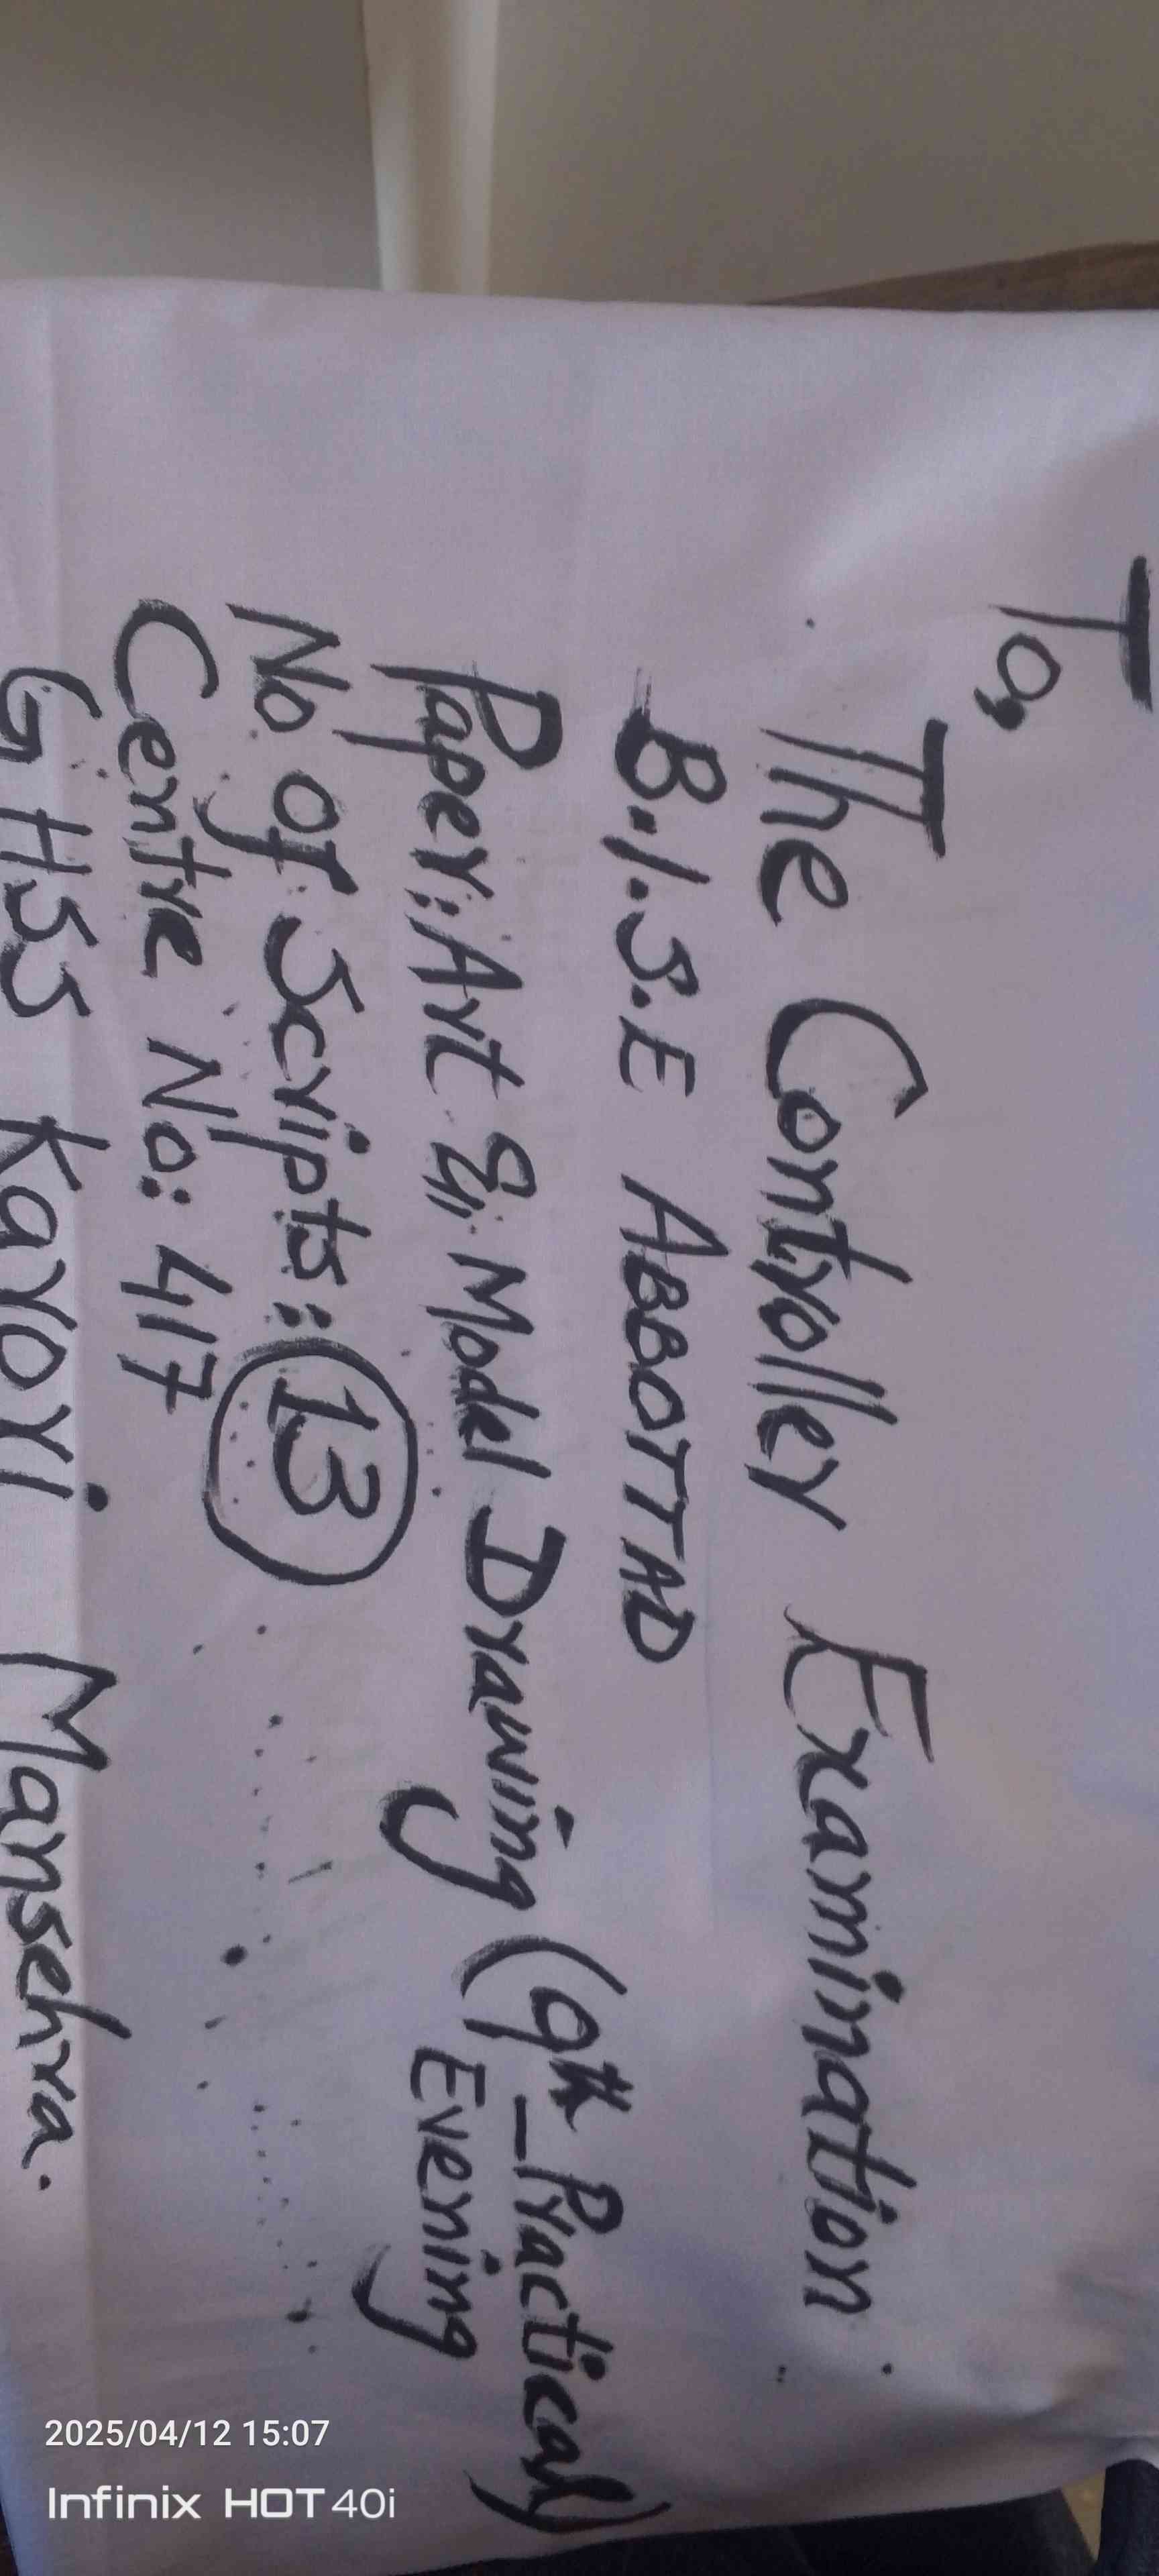 To,
The Controller Examination
B.I.S.E ABBOTTAD
Paper: Art & Model Drawing (9th_Practical)
Evening
No of Scripts: 13
Centre No: 417
GHSS Karori Mansehra.
2025/04/12 15:07
Infinix HOT 40i